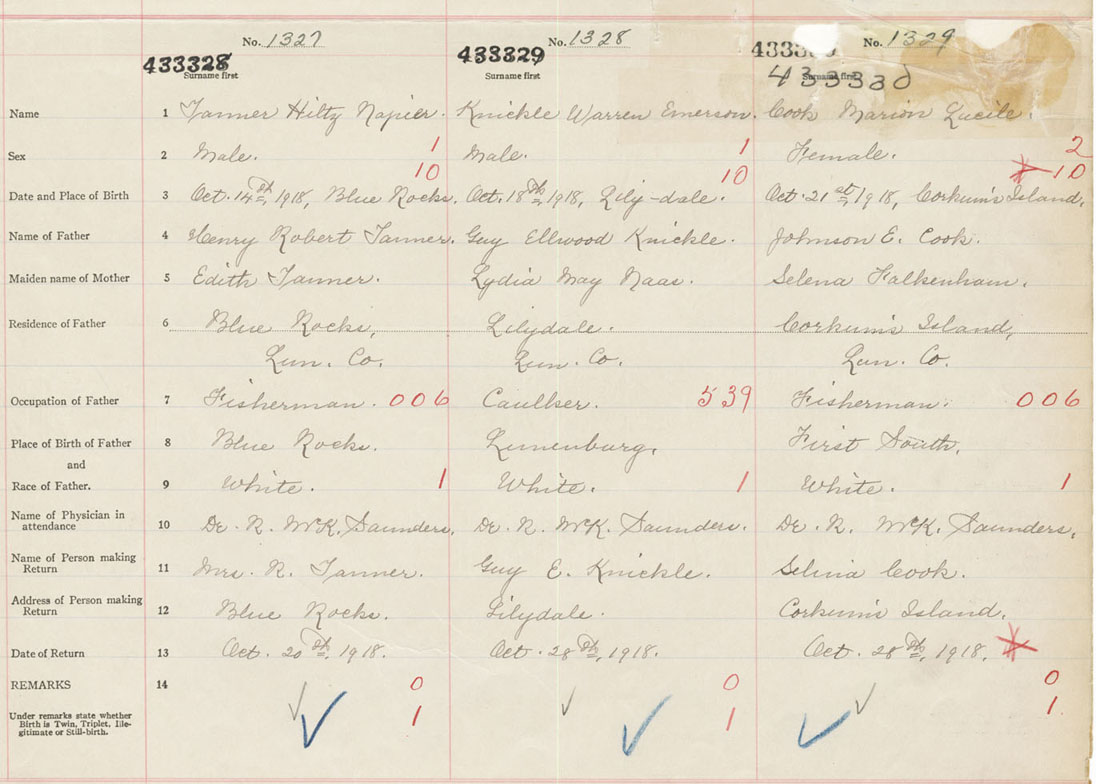 No. 1327 No. 1328 No. 1329
433328 433329 4333
Surname first Surname first Surname first
433330
Name 1 Tanner Hiltz Napier. Knickle Warren Emerson. Cook Marion Lucile.
Sex 2 Male. 1 Male. 1 Female. 2
10 10 10
Date and Place of Birth 3 Oct. 14th, 1918, Blue Rocks. Oct. 18th, 1918, Lily-dale. Oct. 21st, 1918, Corkum's Island.
Name of Father 4 Henry Robert Tanner. Guy Ellwood Knickle. Johnson E. Cook.
Maiden name of Mother 5 Edith Tanner. Lydia May Naas. Selena Falkenham.
Residence of Father 6 Blue Rocks, Lilydale. Corkum's Island,
Lun. Co. Lun. Co. Lun. Co.
Occupation of Father 7 Fisherman. 006 Caulker. 539 Fisherman. 006
Place of Birth of Father 8 Blue Rocks. Lunenburg. First South.
and
Race of Father. 9 White. 1 White. 1 White. 1
Name of Physician in
attendance 10 Dr. R. McK. Saunders. Dr. R. McK. Saunders. Dr. R. McK. Saunders.
Name of Person making
Return 11 Mrs. R. Tanner. Guy E. Knickle. Selina Cook.
Address of Person making
Return 12 Blue Rocks. Lilydale. Corkum's Island.
Date of Return 13 Oct. 20th, 1918. Oct. 28th, 1918. Oct. 28th, 1918.
REMARKS 14 0 0 0
Under remarks state whether 1 1 1
Birth is Twin, Triplet, Ille-
gitimate or Still-birth.